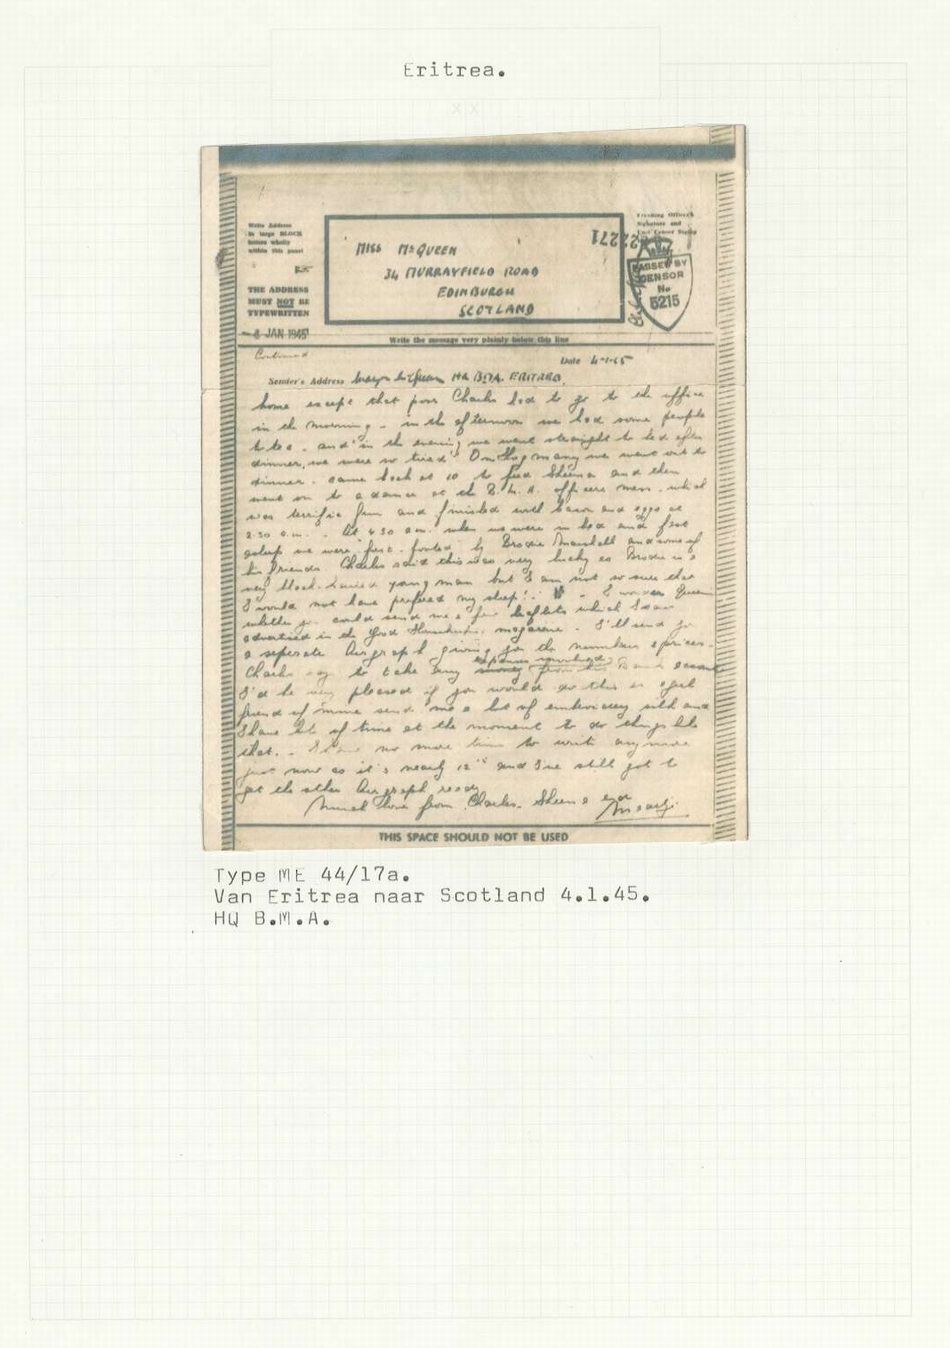 Eritrea.
Write Address
in large BLOCK
letters wholly
within this panel
THE ADDRESS
MUST NOT BE
TYPEWRITTEN
4 JAN 1945
MISS McQUEEN
34 MURRAYFIELD ROAD
EDINBURGH
SCOTLAND
22271
Signature and
PASSED BY
CENSOR
No
5215
Write the message very plainly below this line
Continued
Date 4-1-45
Sender's Address HQ B.M.A. ERITREA.
home except that poor Charles had to go to the office
in the morning - in the afternoon we had some people
to tea - and in the evening we went straight to bed after
dinner, we were so tired! On Hogmanay we went out to
dinner - came back at 10 to feed Sheena and then
went on to a dance at the B.M.A. officers mess - which
was terrific fun and finished with bacon and eggs at
2.30 a.m. - At 4.30 a.m. when we were in bed and fast
asleep we were first-footed by Brodie Marshall and some of
his friends. Charles said this was very lucky as Brodie is a
very black-haired young man but I am not so sure that
I would not have prefered my sleep! - I wonder
whether you could send me a few leaflets which I saw
advertised in the Good magazine - I'll send you
a seperate Airgraph giving you the numbers & prices -
Charles says to take any from his Bank account
I'd be very pleased if you would do this as a great
friend of mine send me a lot of embroidery silk and
I have lots of time at the moment to do things like
that. - I have no more time to write any more
just now as it's nearly 12 and I've still got to
get the other Airgraph ready
Much love from Charles, Sheena and
THIS SPACE SHOULD NOT BE USED
Type ME 44/17a.
Van Eritrea naar Scotland 4.1.45.
HQ B.M.A.